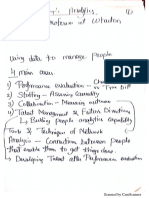 Analytics. (1)
Professor at Wharton
Using data to manage people
4 main areas
1) Performance evaluation -
2) Staffing - Assessing Causality
3) Collaboration - Measuring outcomes
4) Talent Management & Future Directions
↳ Building people analytics capability
Tools & Techniques of Network
Analysis - Connection between people
that enable them to get things done.
→ Developing Talent after Performance evaluation
Scanned by CamScanner